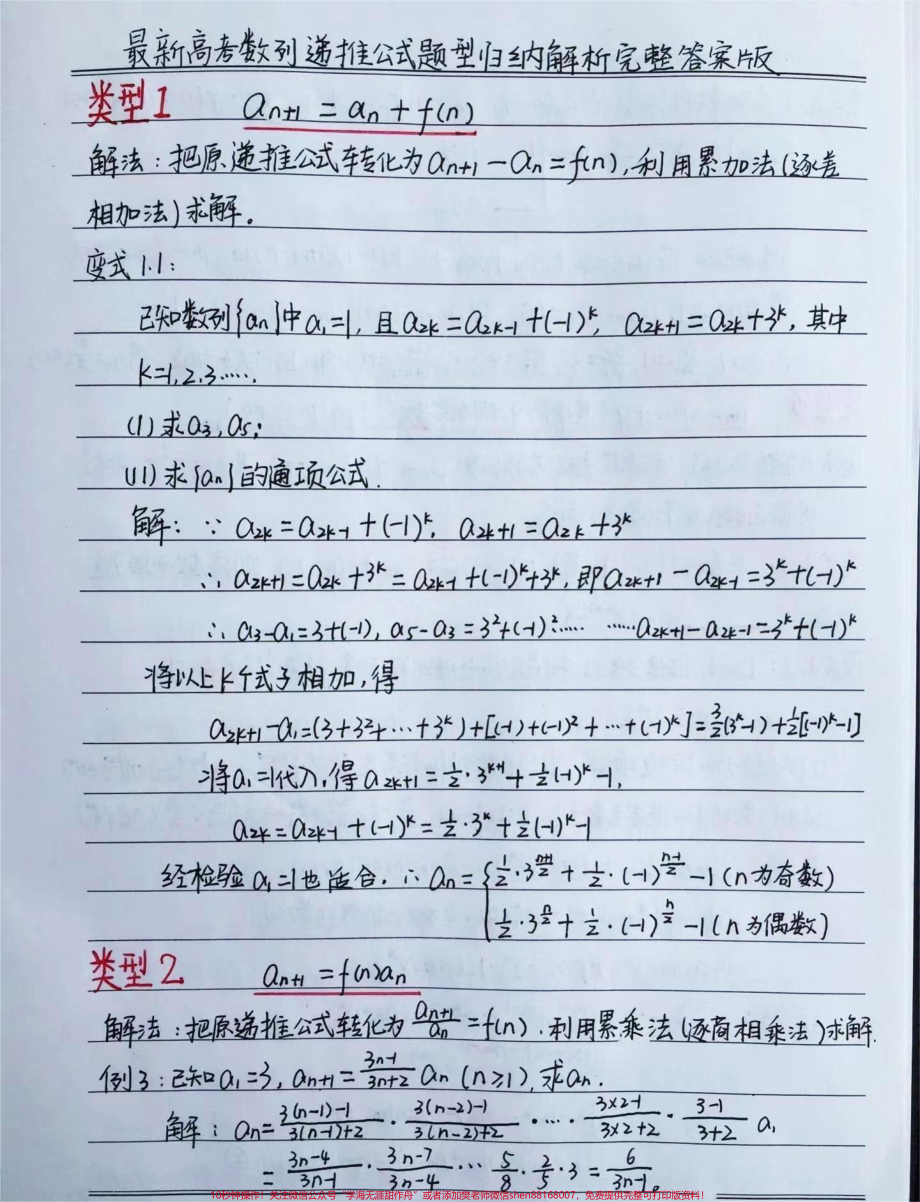 最新高考数列递推公式题型归纳解析完整答案版
类型1 aₙ₊₁ = aₙ + f(n)
解法：把原递推公式转化为aₙ₊₁ - aₙ = f(n),利用累加法(逐差
相加法)求解。
变式1.1:
已知数列{aₙ}中a₁=1, 且a₂ₖ=a₂ₖ₋₁+(-1)ᵏ, a₂ₖ₊₁=a₂ₖ+3ᵏ, 其中
k=1,2,3…….
(I) 求a₃,a₅;
(II) 求{aₙ}的通项公式.
解: ∵ a₂ₖ=a₂ₖ₋₁+(-1)ᵏ, a₂ₖ₊₁=a₂ₖ+3ᵏ
∴ a₂ₖ₊₁=a₂ₖ+3ᵏ=a₂ₖ₋₁+(-1)ᵏ+3ᵏ, 即a₂ₖ₊₁-a₂ₖ₋₁=3ᵏ+(-1)ᵏ
∴ a₃-a₁=3+(-1), a₅-a₃=3²+(-1)²…… ……a₂ₖ₊₁-a₂ₖ₋₁=3ᵏ+(-1)ᵏ
将以上k个式子相加,得
a₂ₖ₊₁-a₁=(3+3²+…+3ᵏ)+[(-1)+(-1)²+…+(-1)ᵏ]=3/2(3ᵏ-1)+1/2[(-1)ᵏ-1]
将a₁=1代入,得a₂ₖ₊₁=1/2·3ᵏ⁺¹+1/2(-1)ᵏ-1,
a₂ₖ=a₂ₖ₋₁+(-1)ᵏ=1/2·3ᵏ+1/2(-1)ᵏ-1
经检验a₁=1也适合. ∴ aₙ={1/2·3^((n+1)/2)+1/2·(-1)^((n-1)/2)-1(n为奇数)
1/2·3^(n/2)+1/2·(-1)^(n/2)-1(n为偶数)
类型2 aₙ₊₁=f(n)aₙ
解法:把原递推公式转化为aₙ₊₁/aₙ=f(n).利用累乘法(逐商相乘法)求解.
例3:已知a₁=3, aₙ₊₁=(3n-1)/(3n+2) aₙ (n≥1),求aₙ.
解: aₙ=(3(n-1)-1)/(3(n-1)+2)·(3(n-2)-1)/(3(n-2)+2)·…·(3×2-1)/(3×2+2)·(3-1)/(3+2) a₁
=(3n-4)/(3n-1)·(3n-7)/(3n-4)…5/8·2/5·3=6/(3n-1)。
10秒钟操作！关注微信公众号“学海无涯甜作舟”或者添加樊老师微信shen88168007，免费提供完整可打印版资料！